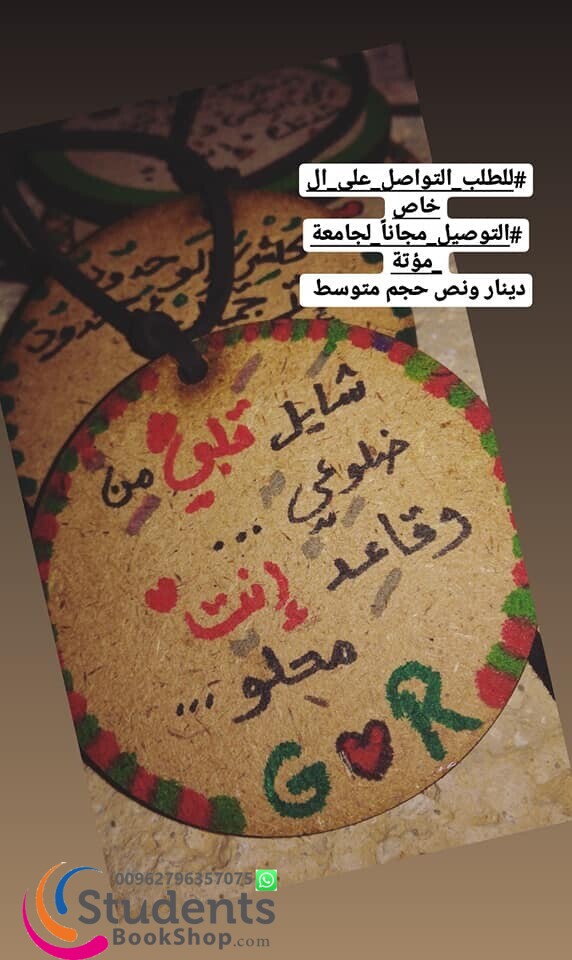 #للطلب_التواصل_على_ال
خاص
#التوصيل_مجاناً_لجامعة
_مؤتة
دينار ونص حجم متوسط
شايل قلبي من
ضلوعي ...
وقاعد إنت
محلو ...
G R
00962796357075
Students
BookShop.com